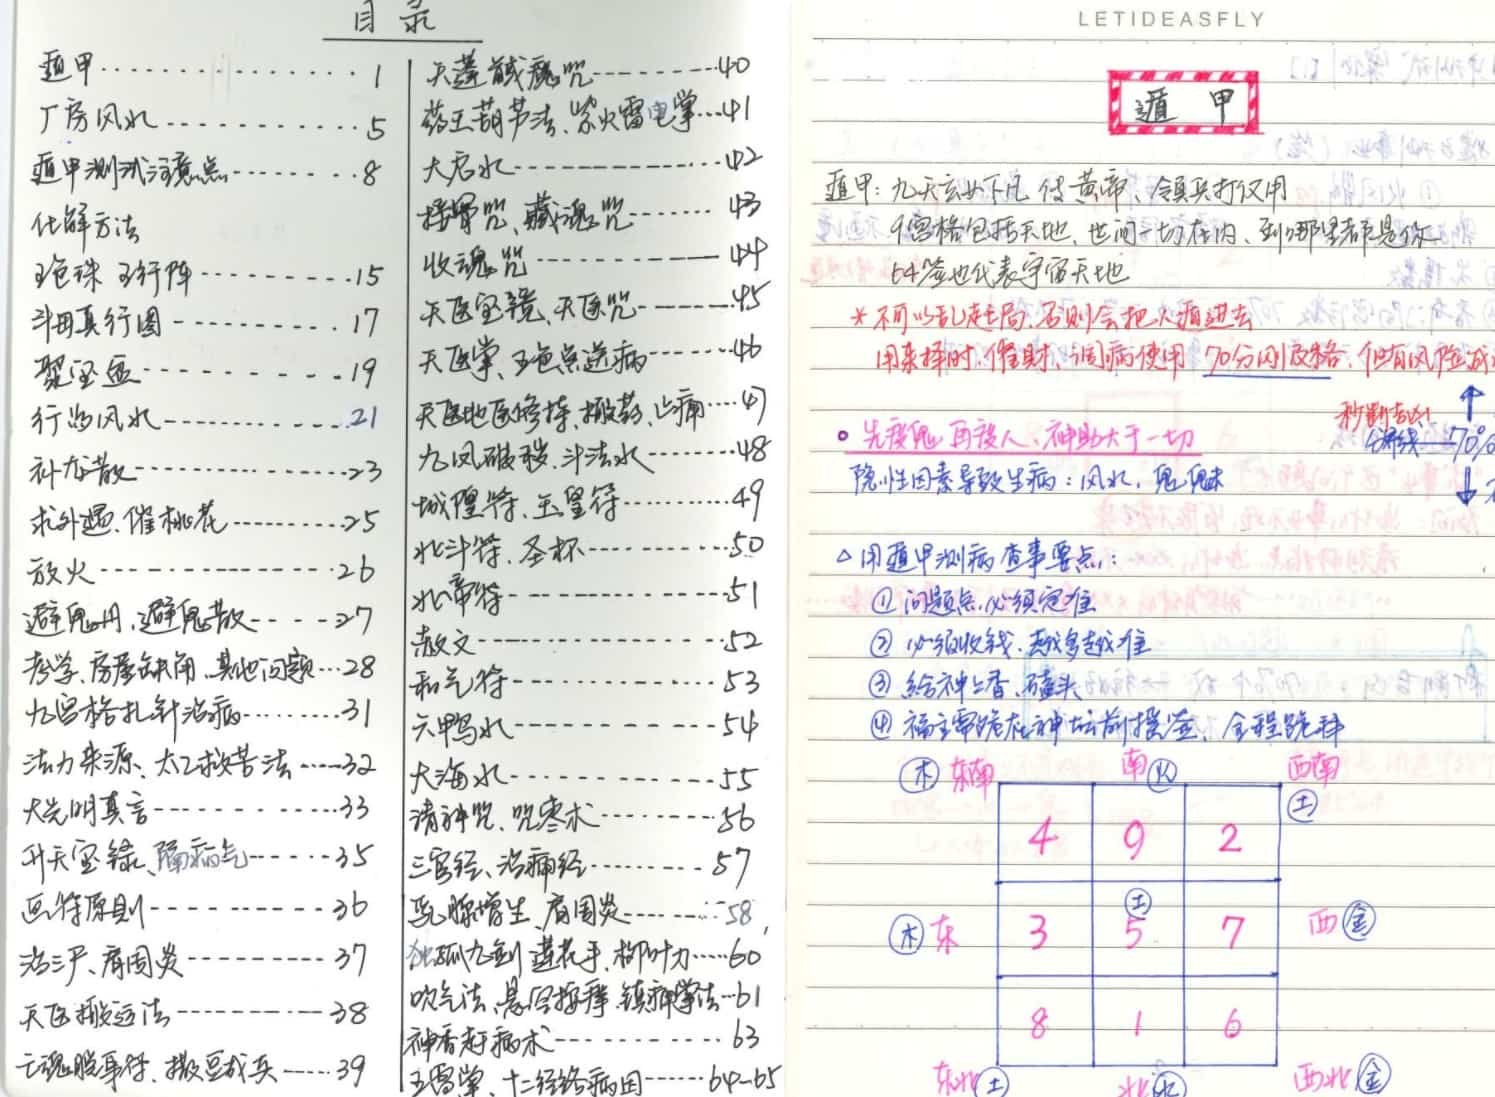 目录
遁甲 1
厂房风水 5
遁甲测试注意点 8
化解方法
五色珠 五行阵 15
斗田真行图 17
聚宝盆 19
行为风水 21
补龙散 23
求外遇、催桃花 25
放火 26
避鬼丹、避鬼散 27
考学、房屋缺角、其他问题 28
九宫格扎针治病 31
法力来源、太乙救苦法 32
大光明真言 33
升天宝箓、隔病气 35
画符原则 36
治三尸、肩周炎 37
天医搬运法 38
亡魂脱身符、撒豆成兵 39
天蓬馘魔咒 40
药王葫芦法、紫火雷电掌 41
大君水 42
接骨咒、藏魂咒 43
收魂咒 44
天医宝镜、天医咒 45
天医掌、五色点送病 46
天医地医修持、搬药、止痛 47
九凤破秽、斗法水 48
城隍符、玉皇符 49
北斗符、圣杯 50
北帝符 51
散文 52
和气符 53
六鸭水 54
大海水 55
请神咒、咒枣术 56
三官经、治痛经 57
乳腺增生、肩周炎 58
独孤九剑 莲花手、柳叶刀 60
吹气法、悬空按摩、镇痛掌法 61
神香赶病术 63
五雷掌、十二经络病因 64-65
LETIDEASFLY
遁甲
遁甲：九天玄女下凡 传黄帝、领兵打仗用
9宫格包括天地、世间一切在内、到哪里都是你
64签也代表宇宙天地
*不可以乱起局、否则会把人遁进去
用来择时、催财、调病使用 70分刚及格、但有风险
秒断吉凶
分界线 70%
先度鬼 再度人、神助大于一切
隐性因素导致生病：风水、鬼魅
△用遁甲测病 查事要点：
① 问题点必须定准
② 必须收钱、越多越准
③ 给神上香、磕头
④ 福主需跪在神坛前摇签、全程跪拜
木 东南 南 火 西南 土
4 9 2
木 东 3 土 5 7 西 金
8 1 6
东北 土 北 水 西北 金